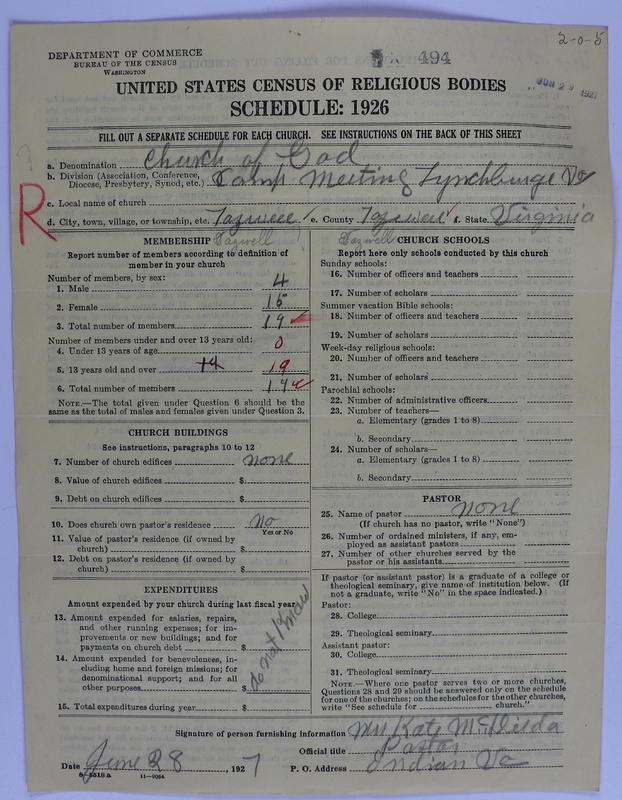 2-0-5
494
DEPARTMENT OF COMMERCE
BUREAU OF THE CENSUS
WASHINGTON
JUN 29 1927
UNITED STATES CENSUS OF RELIGIOUS BODIES
SCHEDULE: 1926
FILL OUT A SEPARATE SCHEDULE FOR EACH CHURCH. SEE INSTRUCTIONS ON THE BACK OF THIS SHEET
R
a. Denomination Church of God
b. Division (Association, Conference, Diocese, Presbytery, Synod, etc.) Camp Meeting Lynchburge Va
c. Local name of church
d. City, town, village, or township, etc. Tazweel e. County Tazweel f. State. Virginia
Tazwell
Tazwell
MEMBERSHIP
Report number of members according to definition of
member in your church
Number of members, by sex:
1. Male 4
2. Female 15
3. Total number of members 19
Number of members under and over 13 years old:
4. Under 13 years of age 0
5. 13 years old and over 14 19
6. Total number of members 19
NOTE.—The total given under Question 6 should be
same as the total of males and females given under Question 3.
CHURCH BUILDINGS
See instructions, paragraphs 10 to 12
7. Number of church edifices none
8. Value of church edifices $
9. Debt on church edifices $
10. Does church own pastor's residence no
Yes or No
11. Value of pastor's residence (if owned by
church) $
12. Debt on pastor's residence (if owned by
church) $
EXPENDITURES
Amount expended by your church during last fiscal year
13. Amount expended for salaries, repairs,
and other running expenses; for im-
provements or new buildings; and for
payments on church debt $
14. Amount expended for benevolences, in-
cluding home and foreign missions; for
denominational support; and for all
other purposes $
do not know
15. Total expenditures during year $
CHURCH SCHOOLS
Report here only schools conducted by this church
Sunday schools:
16. Number of officers and teachers
17. Number of scholars
Summer vacation Bible schools:
18. Number of officers and teachers
19. Number of scholars
Week-day religious schools:
20. Number of officers and teachers
21. Number of scholars
Parochial schools:
22. Number of administrative officers
23. Number of teachers—
a. Elementary (grades 1 to 8)
b. Secondary
24. Number of scholars—
a. Elementary (grades 1 to 8)
b. Secondary
PASTOR
25. Name of pastor none
(If church has no pastor, write "None")
26. Number of ordained ministers, if any, em-
ployed as assistant pastors
27. Number of other churches served by the
pastor or his assistants
If pastor (or assistant pastor) is a graduate of a college or
theological seminary, give name of institution below. (If
not a graduate, write "No" in the space indicated.)
Pastor:
28. College
29. Theological seminary
Assistant pastor:
30. College
31. Theological seminary
NOTE.—Where one pastor serves two or more churches,
Questions 28 and 29 should be answered only on the schedule
for one of the churches; on the schedules for the other churches,
write "See schedule for church."
Signature of person furnishing information Mrs Kate
Official title Pastor
Date June 28, 1927 P. O. Address Indian Va
8-5518a 11-9064